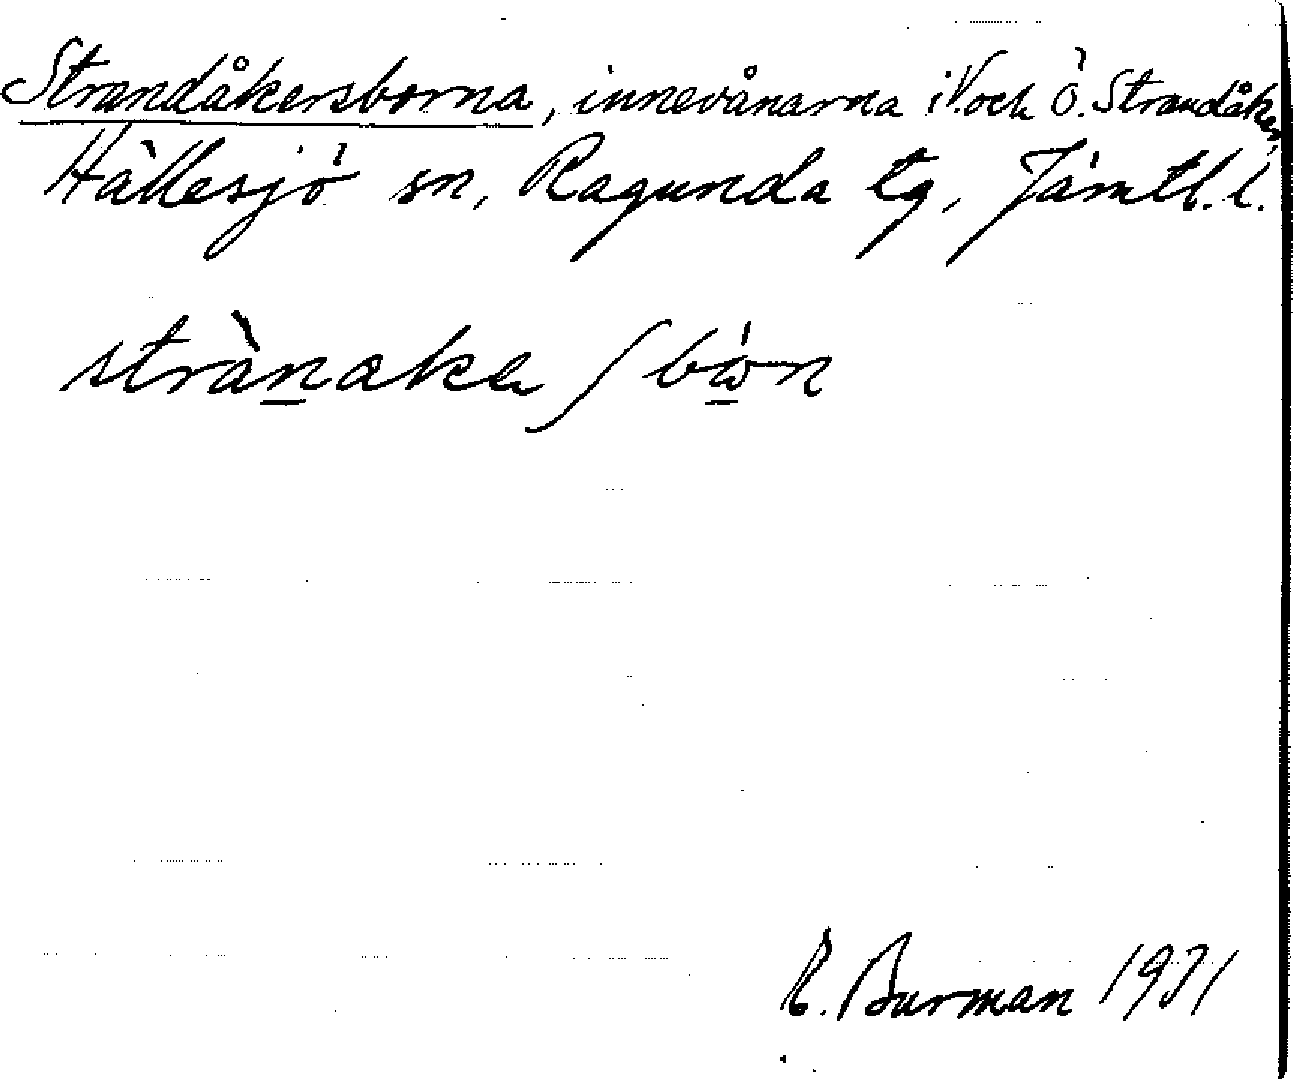 Strandåkersborna, innevånarna i V. och Ö. Strandåker,
Hällesjö sn, Ragunda tg, Jämtl. l.
R. Burman 1971